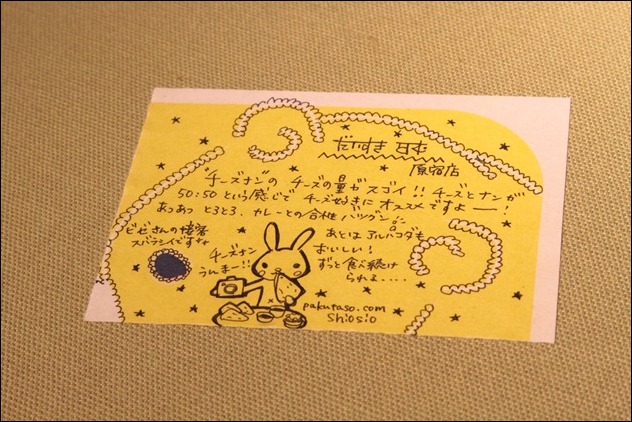 だいすき日本
原宿店
"チーズナン"の チーズの量が スゴイ!! チーズとナンが
50:50という感じで チーズ好きに オススメですよー!
あつあつ とろとろ、カレーとの合性 バツグン
ビゼさんの接客
スバラシイですナァ
あとは アルパコダも
おいしい!
ずっと食べ続け
られる....
チーズナン
うんまー!!
pakutaso.com
shiosio